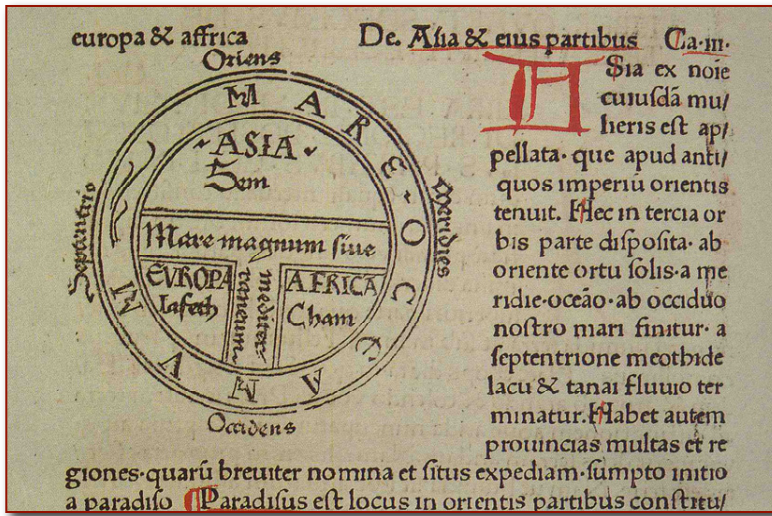 europa & affrica
De. Asia & eius partibus Ca.iii.
Oriens
MARE OCCEANVM
ASIA
Sem
Mare magnum siue
mediter
raneum
EVROPA
Iafeth
AFRICA
Cham
Septentrio
Meridies
Occidens
ASia ex noie
cuiusdā mu/
lieris est ap/
pellata. que apud anti/
quos imperiū orientis
tenuit. Hec in tercia or
bis parte disposita. ab
oriente ortu solis. a me
ridie. oceāo. ab occiduo
nostro mari finitur. a
septentrione meothide
lacu & tanai fluuio ter
minatur. Habet autem
prouincias multas et re
giones. quarū breuiter nomina et situs expediam. sumpto initio
a paradiso Paradisus est locus in orientis partibus constitu/